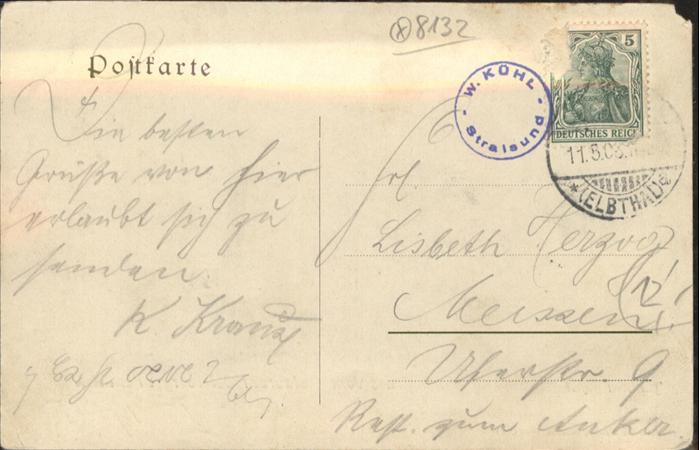 8132
Postkarte
W. KÜHL
Stralsund
5
DEUTSCHES REICH
11.5.08.
(ELBTHAL)
Die besten
Grüße von hier
erlaubt sich zu
senden
K.
Frl.
Lisbeth Herzog
Meissen
Uferstr. 9.
Rest. zum Anker.